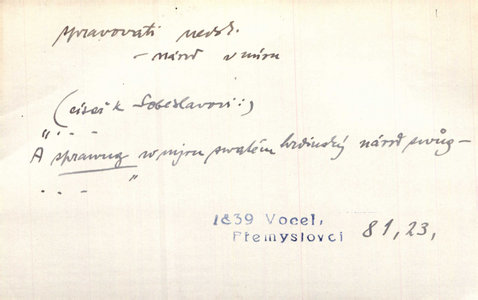 spravovati nedok.
– národ v míru
(císař k Soběslavovi:)
„. – –
A sprawug w mjru swatém hrdinský národ swůg –
. . – "
1839 Vocel,
Přemyslovci 81, 23,